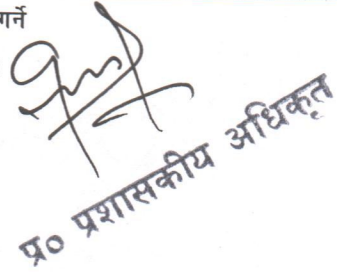 गर्ने
प्र० प्रशासकीय अधिकृत